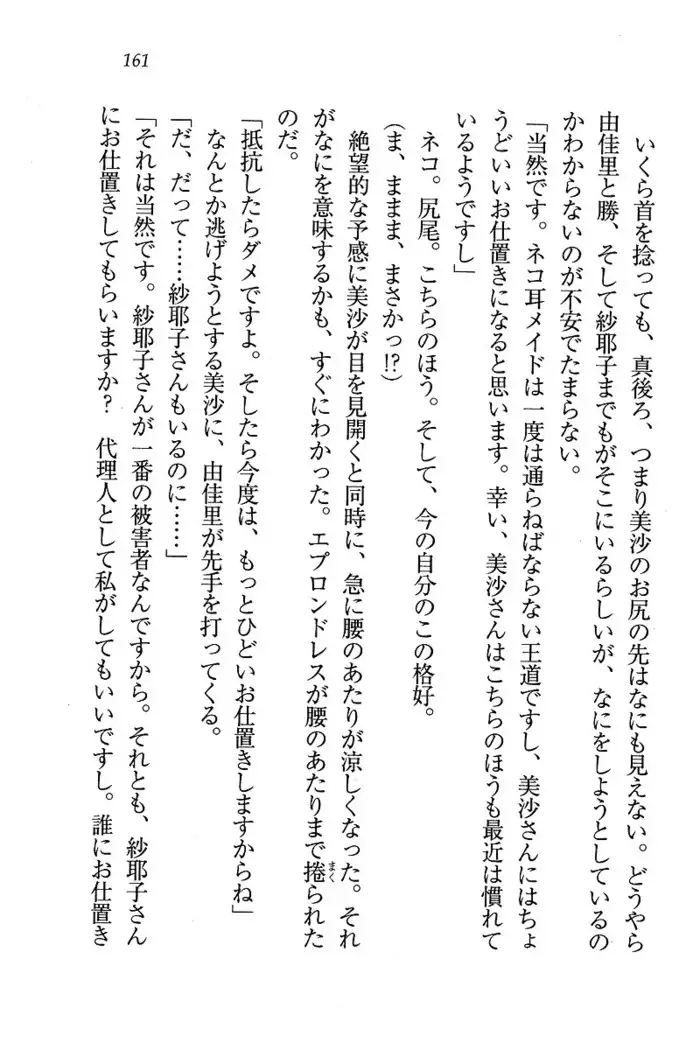 161
いくら首を捻っても、真後ろ、つまり美沙のお尻の先はなにも見えない。どうやら
由佳里と勝、そして紗耶子までもがそこにいるらしいが、なにをしようとしているの
かわからないのが不安でたまらない。
「当然です。ネコ耳メイドは一度は通らねばならない王道ですし、美沙さんにはちょ
うどいいお仕置きになると思います。幸い、美沙さんはこちらのほうも最近は慣れて
いるようですし」
ネコ。尻尾。こちらのほう。そして、今の自分のこの格好。
(ま、ままま、まさかっ!?)
絶望的な予感に美沙が目を見開くと同時に、急に腰のあたりが涼しくなった。それ
がなにを意味するかも、すぐにわかった。エプロンドレスが腰のあたりまで捲られた
のだ。
「抵抗したらダメですよ。そしたら今度は、もっとひどいお仕置きしますからね」
なんとか逃げようとする美沙に、由佳里が先手を打ってくる。
「だ、だって……紗耶子さんもいるのに……」
「それは当然です。紗耶子さんが一番の被害者なんですから。それとも、紗耶子さん
にお仕置きしてもらいますか?　代理人として私がしてもいいですし。誰にお仕置き